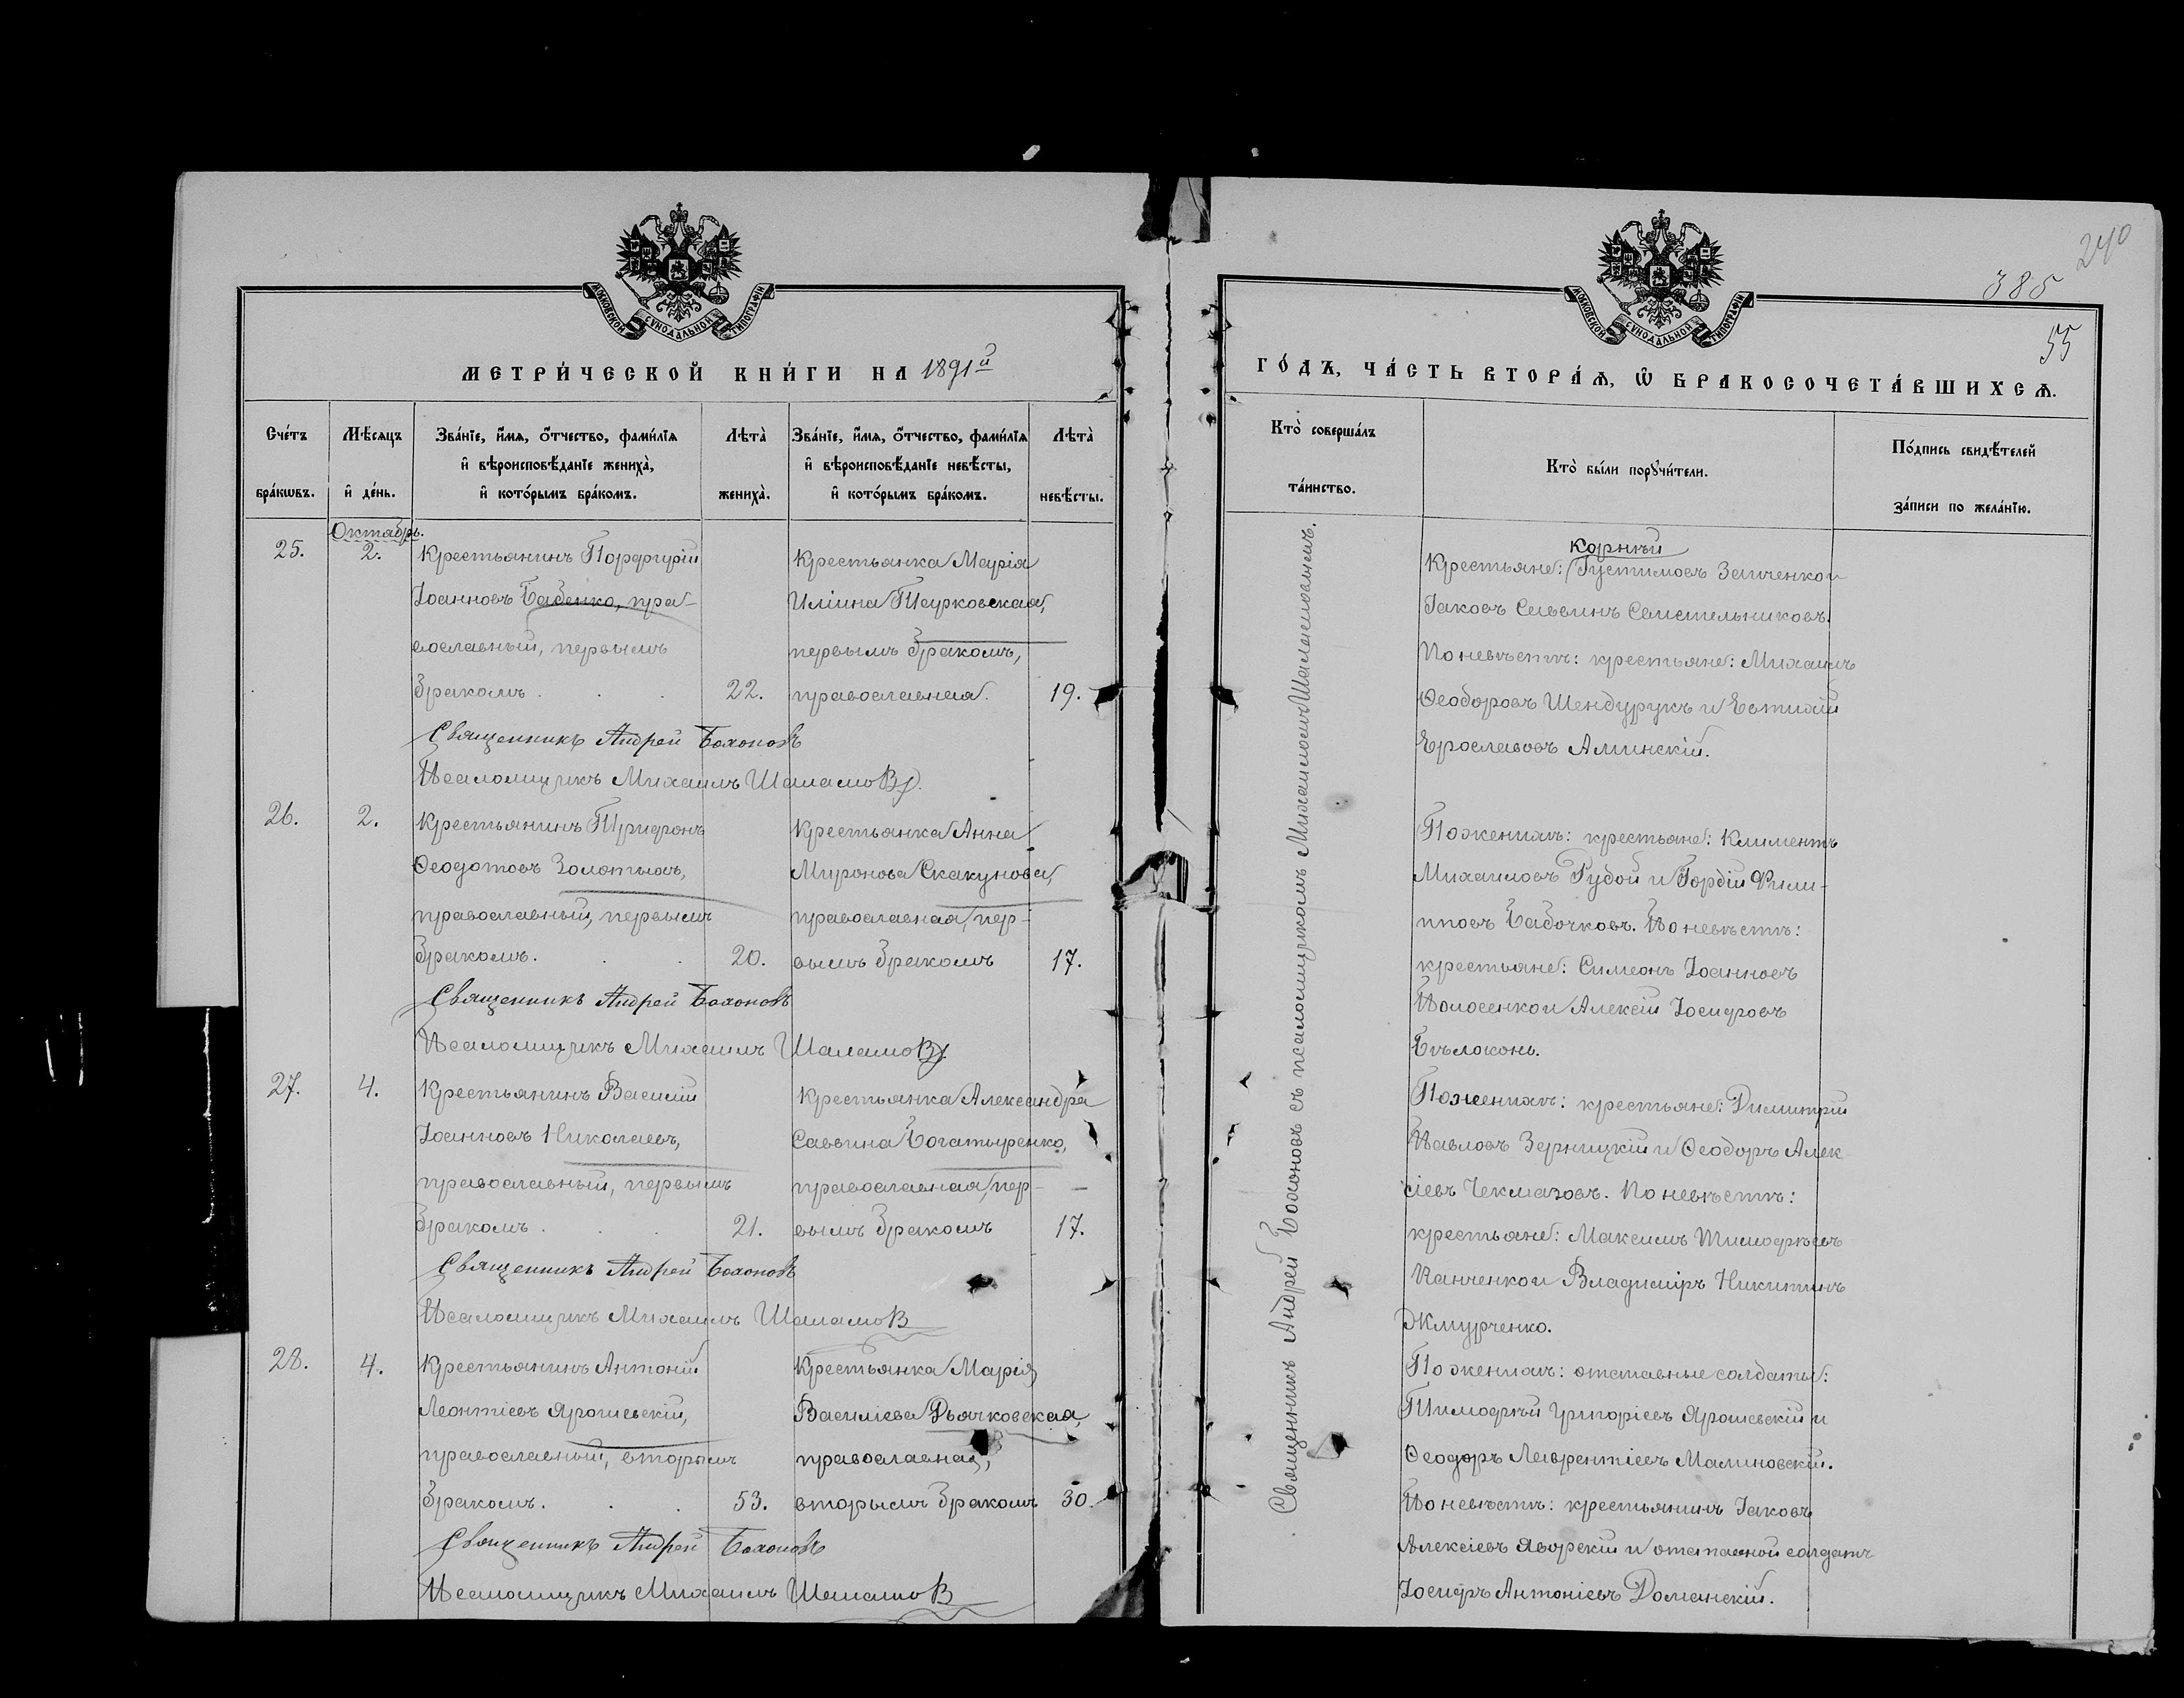 МОСКОВСКОЙ СУНОДАЛЬНОЙ ТИПОГРАФІИ
МЕТРИ́ЧЕСКОЙ КНИ́ГИ НА 1891й
Сче́тъ бра́кѡвъ.
Мѣ́сяцъ и де́нь.
Зва́нїе, и́мя, о́тчество, фами́лїя и вѣроисповѣ́данїе жениха̀, и кото́рымъ бра́комъ.
Лѣта̀ жениха̀.
Зва́нїе, и́мя, о́тчество, фами́лїя и вѣроисповѣ́данїе невѣ́сты, и кото́рымъ бра́комъ.
Лѣта̀ невѣ́сты.
Октябрь.
25. 2. Крестьянинъ Порфирій
Іоанновъ Бабенко, пра-
вославный, первымъ
бракомъ . . . 22.
Крестьянка Марія
Иліина Турковская,
первымъ бракомъ,
православная. 19.
Священникъ Андрей Бохоновъ
Псаломщикъ Михаилъ Шаламовъ.
26. 2. Крестьянинъ Трифонъ
Ѳеодотовъ Золотыхъ,
православный, первымъ
бракомъ. . . 20.
Крестьянка Анна
Миронова Скакунова,
православная, пер-
вымъ бракомъ 17.
Священникъ Андрей Бохоновъ
Псаломщикъ Михаилъ Шаламовъ.
27. 4. Крестьянинъ Василій
Іоанновъ Николаевъ,
православный, первымъ
бракомъ . . . 21.
Крестьянка Александра
Саввина Богатыренко,
православная, пер-
вымъ бракомъ 17.
Священникъ Андрей Бохоновъ
Псаломщикъ Михаилъ Шаламов
28. 4. Крестьянинъ Антоній
Леонтіевъ Ярошевскій,
православный, вторымъ
бракомъ. . . 53.
Крестьянка Марія
Василіева Дьячковская,
православная,
вторымъ бракомъ 30.
Священникъ Андрей Бохоновъ
Псаломщикъ Михаилъ Шаламов
240
385
55
МОСКОВСКОЙ СУНОДАЛЬНОЙ ТИПОГРАФІИ
ГО́ДЪ, ЧА́СТЬ ВТОРА́Ѧ, Ѡ БРАКОСОЧЕТА́ВШИХСѦ.
Кто̀ соверша́лъ та́инство.
Кто̀ бы́ли порꙋчи́тели.
По́дпись свидѣ́телей за́писи по жела́нїю.
Священникъ Андрей Бохоновъ съ псаломщикомъ Михаиломъ Шаламовымъ.
Корнѣй
Крестьяне: Густимовъ Зинченко и
Іаковъ Саввинъ
По невѣстѣ: крестьяне: Михаилъ
Ѳеодоровъ Шендурукъ и Евтихій
Ерославовъ Алинскій.
По женихѣ: крестьяне: Климентъ
Михаиловъ Губой и Гордій Фили-
пповъ Бабочковъ. По невѣстѣ:
крестьяне: Симеонъ Іоанновъ
и Алексій Іосифовъ
Бѣлоконь.
По женихѣ: крестьяне: Димитрій
Павловъ Зерницкій и Ѳеодоръ Алек-
сіевъ Чекмазовъ. По невѣстѣ:
крестьяне: Максимъ Тимофѣевъ
Канченко и Владиміръ Никитинъ
Жмурченко.
По женихѣ: отставные солдаты:
Тимофѣй Григоріевъ Ярошевскій и
Ѳеодоръ Лаврентіевъ Малиновскій.
По невѣстѣ: крестьянинъ Іаковъ
Алексіевъ Яворскій и отставной солдатъ
Іосифъ Антоніевъ Доманскій.